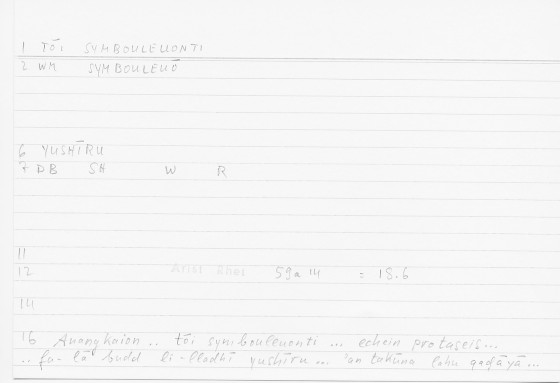 1 TŌI SYMBOULEUONTI
2 WM SYMBOULEUŌ
6 YUSHĪRU
7 DB SH W R
11
12 Arist Rhet 59a 14 = 18.6
14
16 Anongkaion .. tōi symbouleuonti ... echein protaseis...
.. fa-lā budd li-lladhī yushīru ... 'an takūna lahu qaḍāyā ...